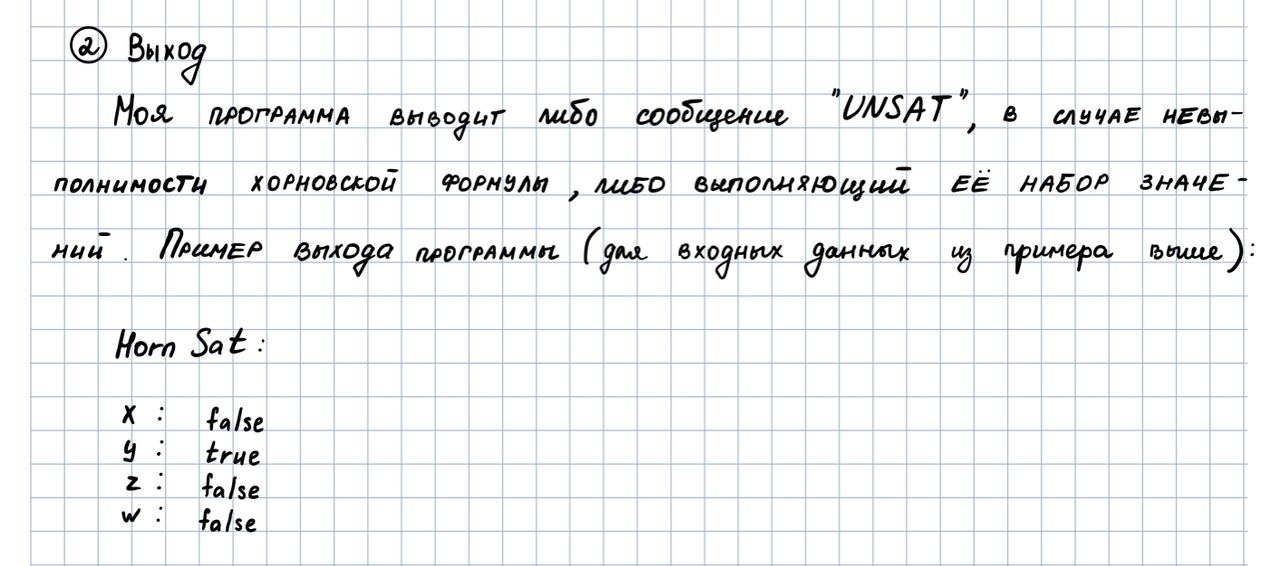 ② Выход
Моя программа выводит либо сообщение "UNSAT", в случае невы-
полнимости хорновской формулы, либо выполняющий её набор значе-
ний. Пример выхода программы (для входных данных из примера выше):
Horn Sat:
x : false
y : true
z : false
w : false